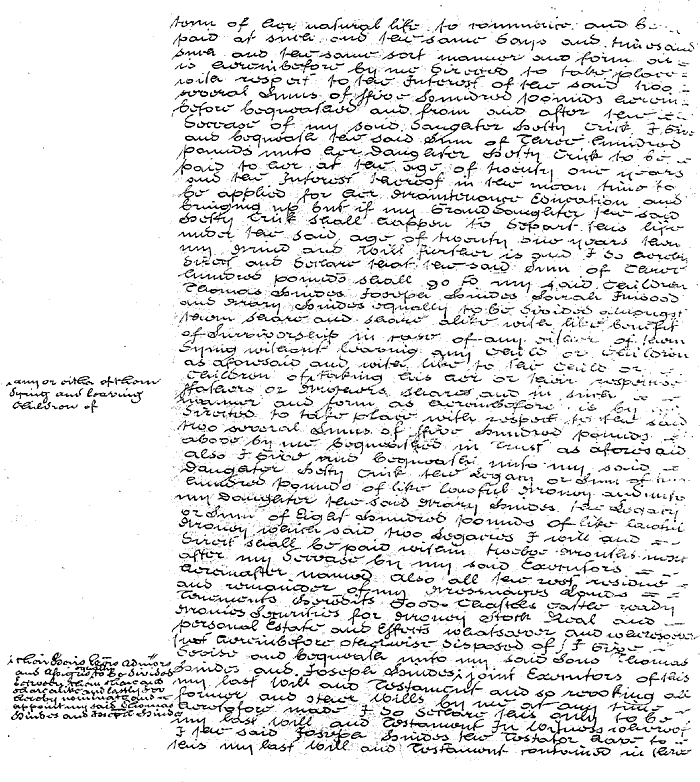 term of her natural life to commence and be
paid at such and the same days and times and
such and the same sort manner and form as
is hereinbefore by me directed to take place
with respect to the Interest of the said two
several Sums of ffive Hundred pounds herein
before bequeathed and from and after the
Decease of my said Daughter Betty Crisk I Give
and bequeath the said Sum of Three hundred
pounds unto her Daughter Betty Crisk to be
paid to her at the age of twenty one years
and the Interest thereof in the mean time to
be applied for her Maintenance Education and
bringing up but if my Granddaughter the said
Betty Crisk shall happen to depart this life
under the said age of twenty one years then
my mind and Will further is and I do hereby
direct and declare that the said Sum of Three
hundred pounds shall go to my said Children
Thomas Hindes Joseph Hindes Sarah
and Mary Hindes equally to be divided amongst
them share and share alike with like benefit
of Survivorship in case of any either of them
dying without leaving any Child or Children
as aforesaid and with like to the Child or
Children of taking his her or their respective
ffathers or Mothers shares and in such
manner and form as hereinbefore is by
directed to take place with respect to the said
two several Sums of ffive Hundred pounds
above by me bequeathed in trust as aforesaid
also I give and bequeath unto my said
Daughter Betty Crisk the Legacy or Sum of
hundred pounds of like lawful Money and unto
my Daughter the said Mary Hindes the Legacy
or Sum of Eight Hundred pounds of like lawful
Money which said two Legacies I will and
direct shall be paid within twelve Months next
after my decease by my said Executors
hereinafter named Also all the rest residue
and remainder of my Messuages Lands
Tenements Heredits Goods Chattels Cattle ready
Monies Securities for Money Stock Real and
personal Estate and Effects whatsoever and wheresoever
not hereinbefore otherwise disposed of I Give
Devise and bequeath unto my said Sons Thomas
Hindes and Joseph Hindes joint Executors of this
my last Will and Testament and so revoking all
former and other Wills by me at any time
heretofore made I do declare this only to be
my last Will and Testament In Witness whereof
I the said Joseph Hindes the Testator have to
this my last Will and Testament contained in three
any or either of them
dying and leaving
Children of
their Heirs admors
and Assigns to be divided
equally between them and
share alike and lastly I do
hereby nominate and
appoint my said Thomas
Hindes and Joseph Hindes